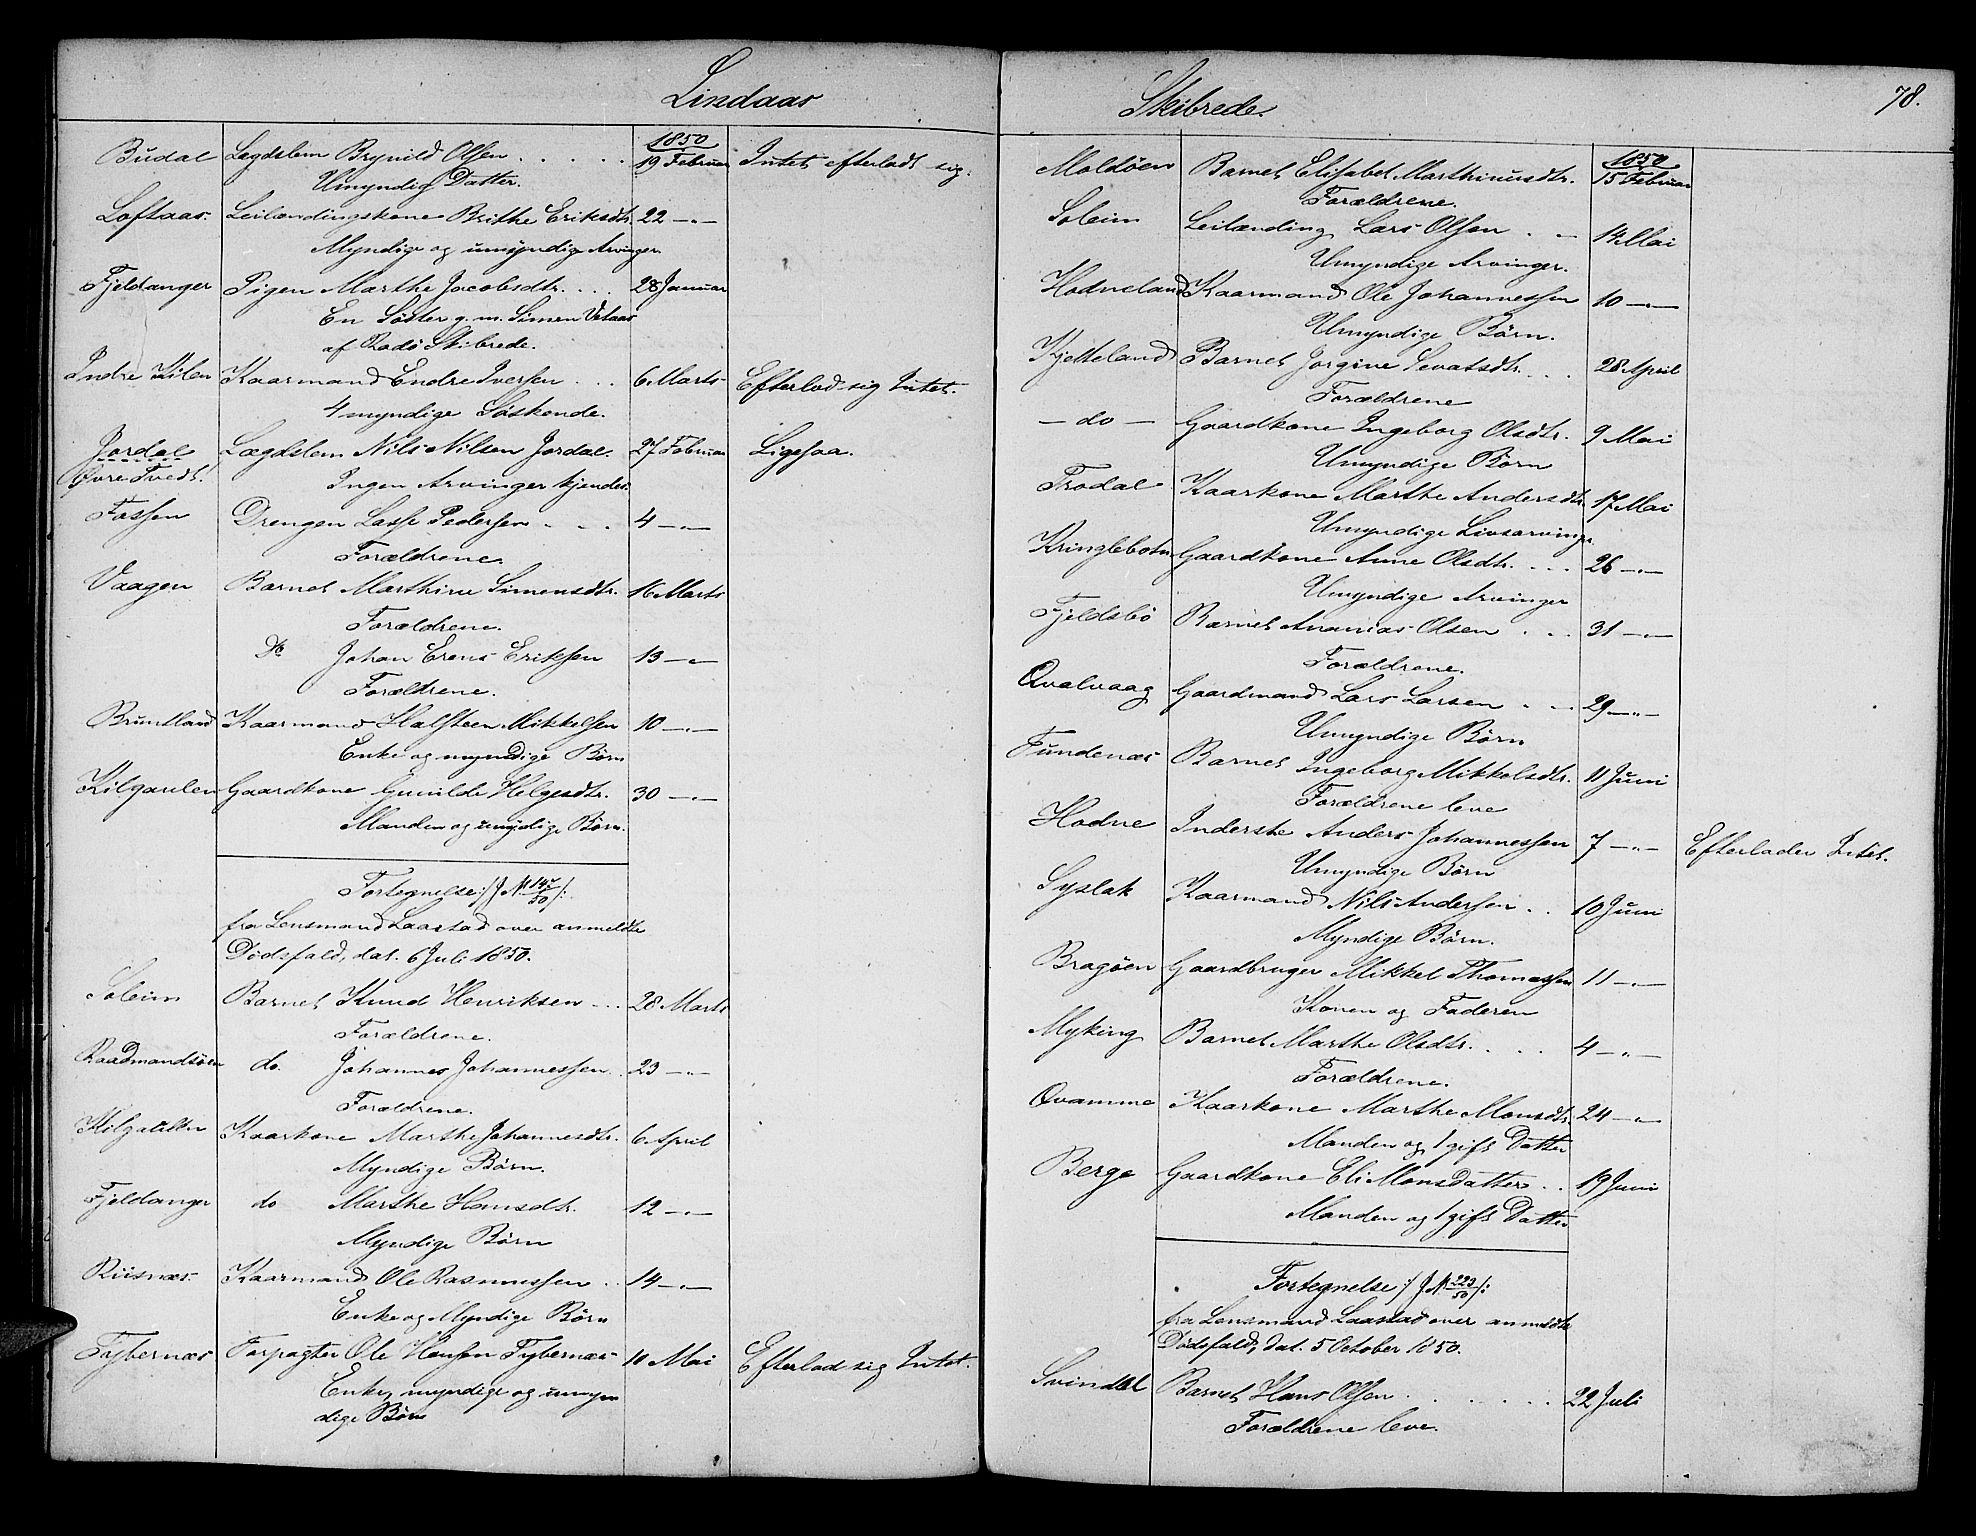 Lindaas
Budal Lægdslem Brynild Olsen . . . . . 1850 19 Februar Intet efterladt sig.
Umyndig Datter.
Loftaas Leilændingskone Brithe Eriksdtr. 22 -"-
Myndige og umyndige Arvinger.
Fjeldanger Pigen Marthe Jacobsdtr. . . . 28 Januar
En Söster g. m. Simen
af Radö Skibrede.
Indre Kilen Kaarmand Endre Iversen . . . 6 Marts Efterlod sig Intet.
4 myndige Söskende.
Jordal Lægdslem Nils Nilsen Jordal. 27 Februar Ligesaa.
Øvre Tvedt. Ingen Arvinger kjendes.
Fossen Drengen Lasse Pedersen . . . 4 -"-
Forældrene.
Vaagen Barnet Marthine Simonsdtr. 16 Marts
Forældrene.
Do Johan Erens Eriksen 13 -"-
Forældrene.
Bruntland Kaarmand Halsteen Mikkelsen 10 -"-
Enke og myndige Börn
Kilgaulen Gaardkone Gunilde Helgesdtr. 30 -"-
Manden og umydige Börn.
Fortegnelse :/ J. No 147/50 /:
fra Lensmand Laastad over anmeldte
Dödsfald, dat. 6 Juli 1850.
Soleim Barnet Knud Henriksen . . . 28 Marts
Forældrene.
Raadmandsöen do. Johannes Johannessen . . 23 -"-
Forældrene.
Kilgaulen Kaarkone Marthe Johannesdtr. 6 April
Myndige Börn.
Fjeldanger do Marthe Hansdtr. 12 -"-
Myndige Börn
Riisnæs. Kaarmand Ole Rasmussen . . 14 -"-
Enke og Myndige Börn
Fybernæs Forpagter Ole Hansen Fybernæs 10 Mai Efterlod sig Intet.
Enke, myndige og umyn
dige Börn
Skibrede.
78.
Moldöen Barnet Elisabet Marthinusdtr. 1850 15 Februar
Forældrene.
Soleim Leilænding Lars Olsen . - 14 Mai
Umyndige Arvinger.
Hodneland Kaarmand Ole Johannessen 10 -"-
Umyndige Börn.
Kjelkeland Barnet Jorgine Sevatsdtr. . . . 28 April
Forældrene
- do - Gaardkone Ingeborg Olsdtr. 9 Mai
Umyndige Börn
Trodal Kaarkone Marthe Andersdtr. 17 Mai
Umyndige Livsarvinge
Kringlebotn Gaardkone Anne Olsdtr. . . . 26 -"-
Umyndige Arvinger
Fjeldsbö Barnet Ananias Olsen . . . 31 -"-
Forældrene.
Qvalvaag Gaardmand Lars Larsen . . . 29 -"-
Umyndige Börn
Fundenæs Barnet Ingeborg Mikkelsdtr. 11 Juni
Forældrene leve
Hodne Inderste Anders Johannessen 7 -"- Efterlader Intet.
Umyndige Börn
Syslak Kaarmand Nils Andersen . . 10 Juni
Myndige Börn.
Bragöen Gaardbruger Mikkel Thomassen 11 -"-
Konen og Faderen
Myking Barnet Marthe Olsdtr. . . . . 4 -"-
Forældrene.
Qvamme Kaarkone Marthe Monsdtr. 24 -"-
Manden og 1 gift Datter
Berge Gaardkone Eli Monsdatter . . 19 Juni
Manden og 1 gift Datter
Fortegnelse :/ J. No 223/50 /:
fra Lensmand Laastad over anmeldte
Dödsfald, dat. 5 October 1850.
Svindal Barnet Hans Olsen . . . . . . 22 Juli
Forældrene leve.